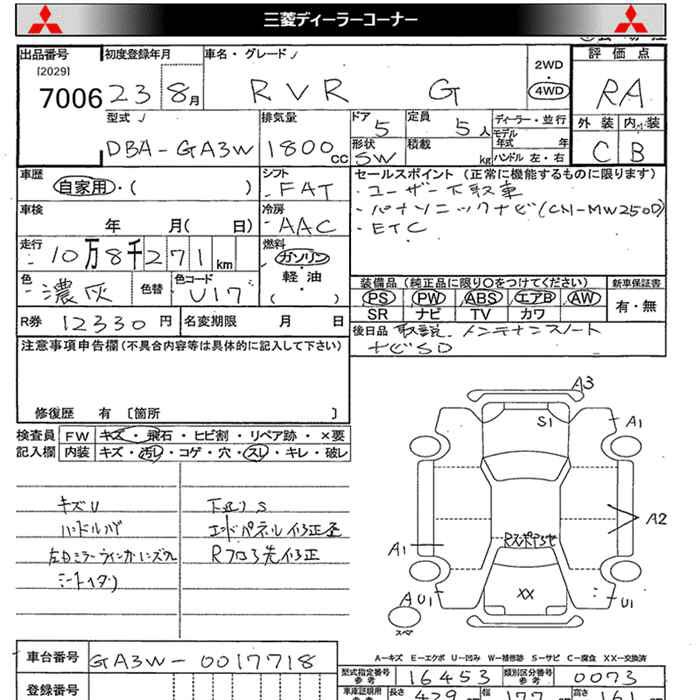 三菱ディーラーコーナー
出品番号 初度登録年月 車名・グレード 評価点
[2029]
7006 23 8月 RVR G 2WD・4WD RA
型式 排気量 ドア 5 定員 5人 ディーラー・並行 外装 内装
DBA-GA3W 1800cc 形状 SW 積載 kg モデル年式 年 ハンドル 左・右 C B
車歴 自家用・( ) シフト FAT セールスポイント (正常に機能するものに限ります)
・ユーザー下取車
車検 年 月( 日) 冷房 AAC ・パナソニックナビ(CN-MW250D)
・ETC
走行 10万8千271km 燃料 ガソリン・軽・油( )
色 濃灰 色替 色コード U17 装備品 (純正品に限り○をつけてください) 新車保証書
PS PW ABS エアB AW 有・無
SR ナビ TV カワ
R券 12330円 名変期限 月 日 後日品 取説、メンテナンスノート
ナビSD
注意事項申告欄(不具合内容等は具体的に記入して下さい)
修復歴 有 〔箇所 〕
検査員 FW キズ・飛石・ヒビ割・リペア跡・×要
記入欄 内装 キズ・汚レ・コゲ・穴・スレ・キレ・破レ
キズU 下廻りS
エンドパネル修正歪
Rフロア先修正
A3
S1
A1
A2
A1
XX
A U1
U1
スペア
A-キズ E-エクボ U-凹み W-補修跡 S-サビ C-腐食 XX-交換済
車台番号 GA3W-0017718 型式指定番号参考 16453 類別区分番号参考 0073
登録番号 車庫証明用 長さ 429 幅 177 高さ